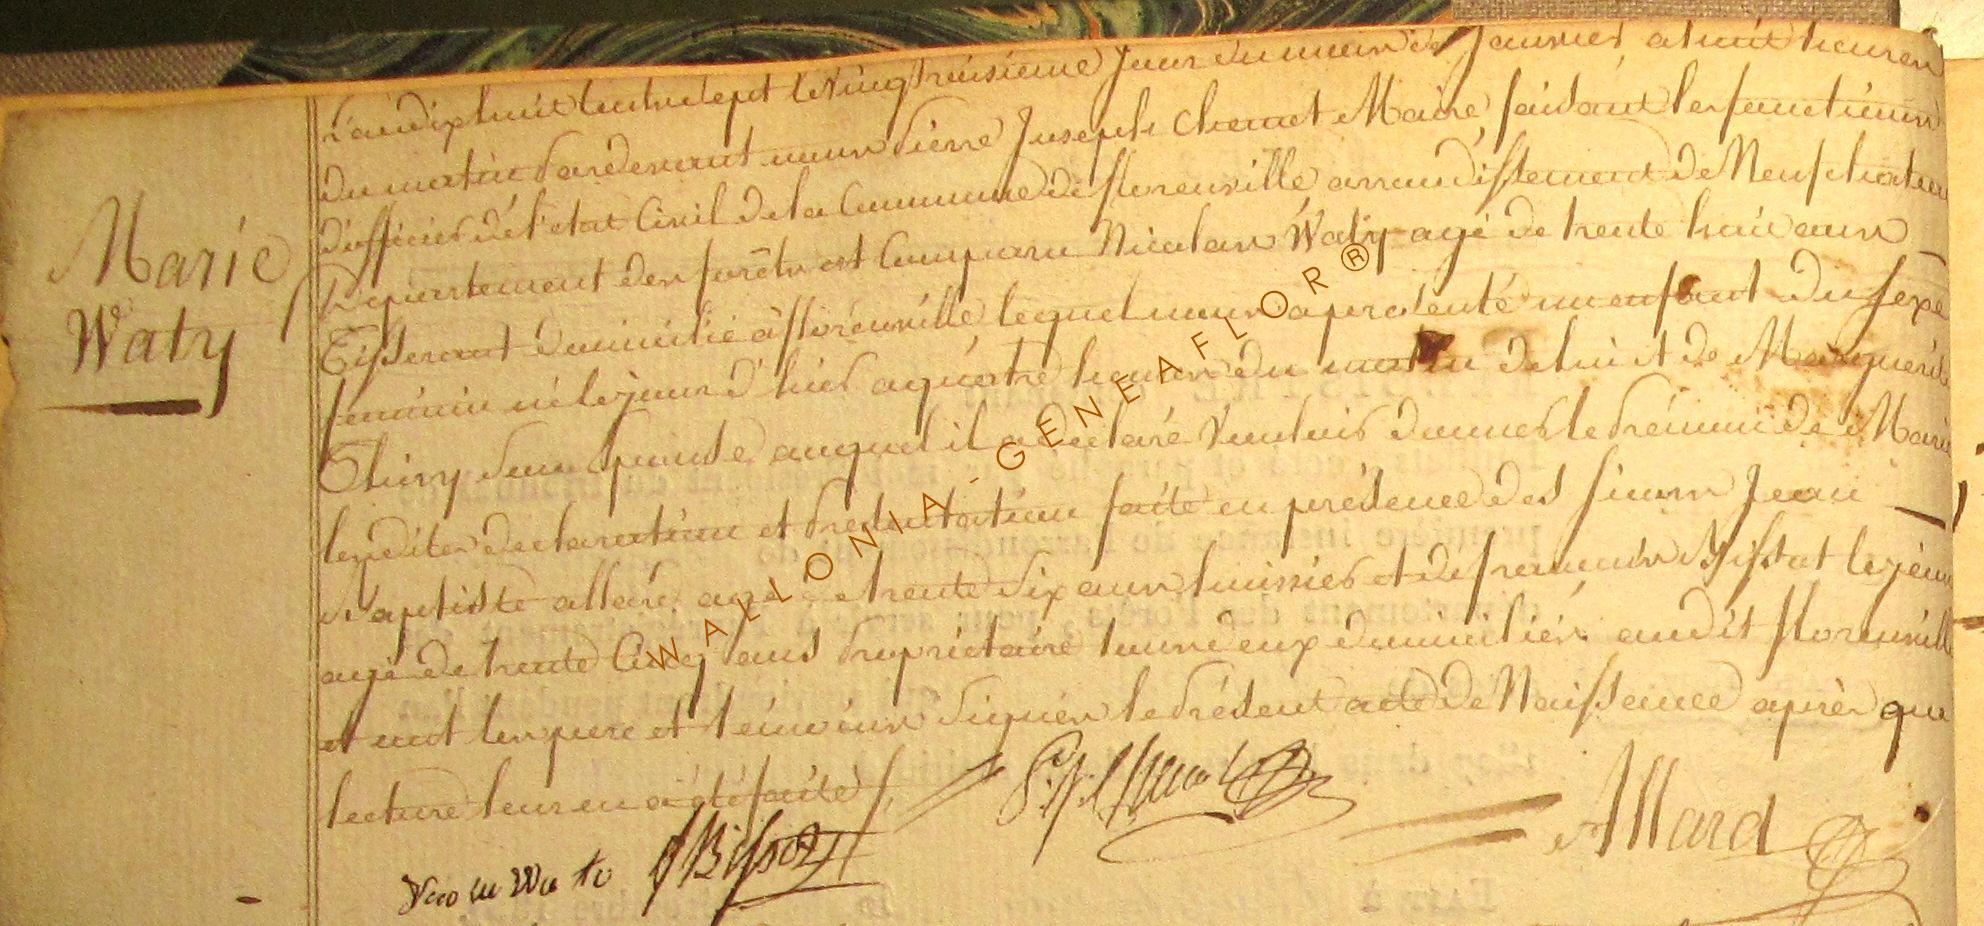 Marie
Waty
L'an dix huit cent et sept le vingt troisieme Jour du mois de Janvier a huit heures
du matin Pardevant nous Pierre Joseph Maire faisant les fonctions
d'officier de l'etat Civil de la Commune de florenville arrondissement de Neufchateau
Departement des forêts est Comparu Nicolas Waty agé de trente huit ans
Tisserant domicilié à florenville lequel nous a présenté un enfant du sexe
feminin né le jour d'hier a quatre heures du matin de lui et de Marguerite
Thiry son epouse auquel il a declaré Vouloir donner le Prénom de Marie
lesdites declaration et Presentation faite en présence des sieurs Jean
Baptiste allard agé de trente six ans huissier et de francois Bissot le jeune
agé de trente Cinq ans Propriétaire tous deux domiciliés audit florenville
et ont les pere et temoins signés le Présent acte de Naissance après que
lecture leur en a été faite
Bissot
Allard
WALLONIA - GENEAFLOR®